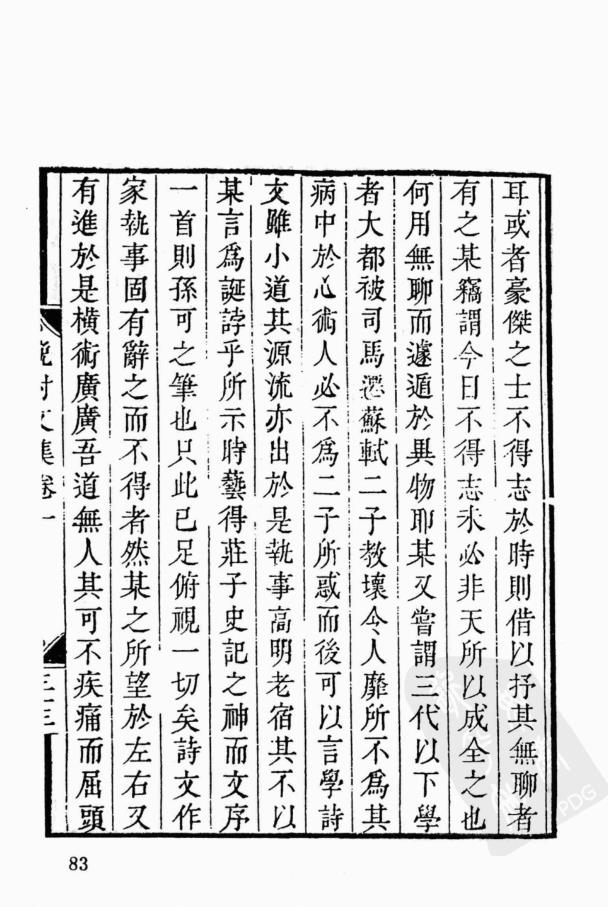 耳或者豪傑之士不得志於時則借以抒其無聊者
有之某竊謂今日不得志未必非天所以成全之也
何用無聊而遽遁於異物耶某又嘗謂三代以下學
者大都被司馬遷蘇軾二子教壞今人靡所不為其
病中於心術人必不為二子所惑而後可以言學詩
文雖小道其源流亦出於是執事高明老宿其不以
某言爲誕諄乎所示時藝得莊子史記之神而文序
一首則孫可之筆也只此已足俯視一切矣詩文作
家執事固有辭之而不得者然某之所望於左右又
有進於是橫術廣廣吾道無人其可不疾痛而屈頭
晚村文集卷一
三十三
83
PDG